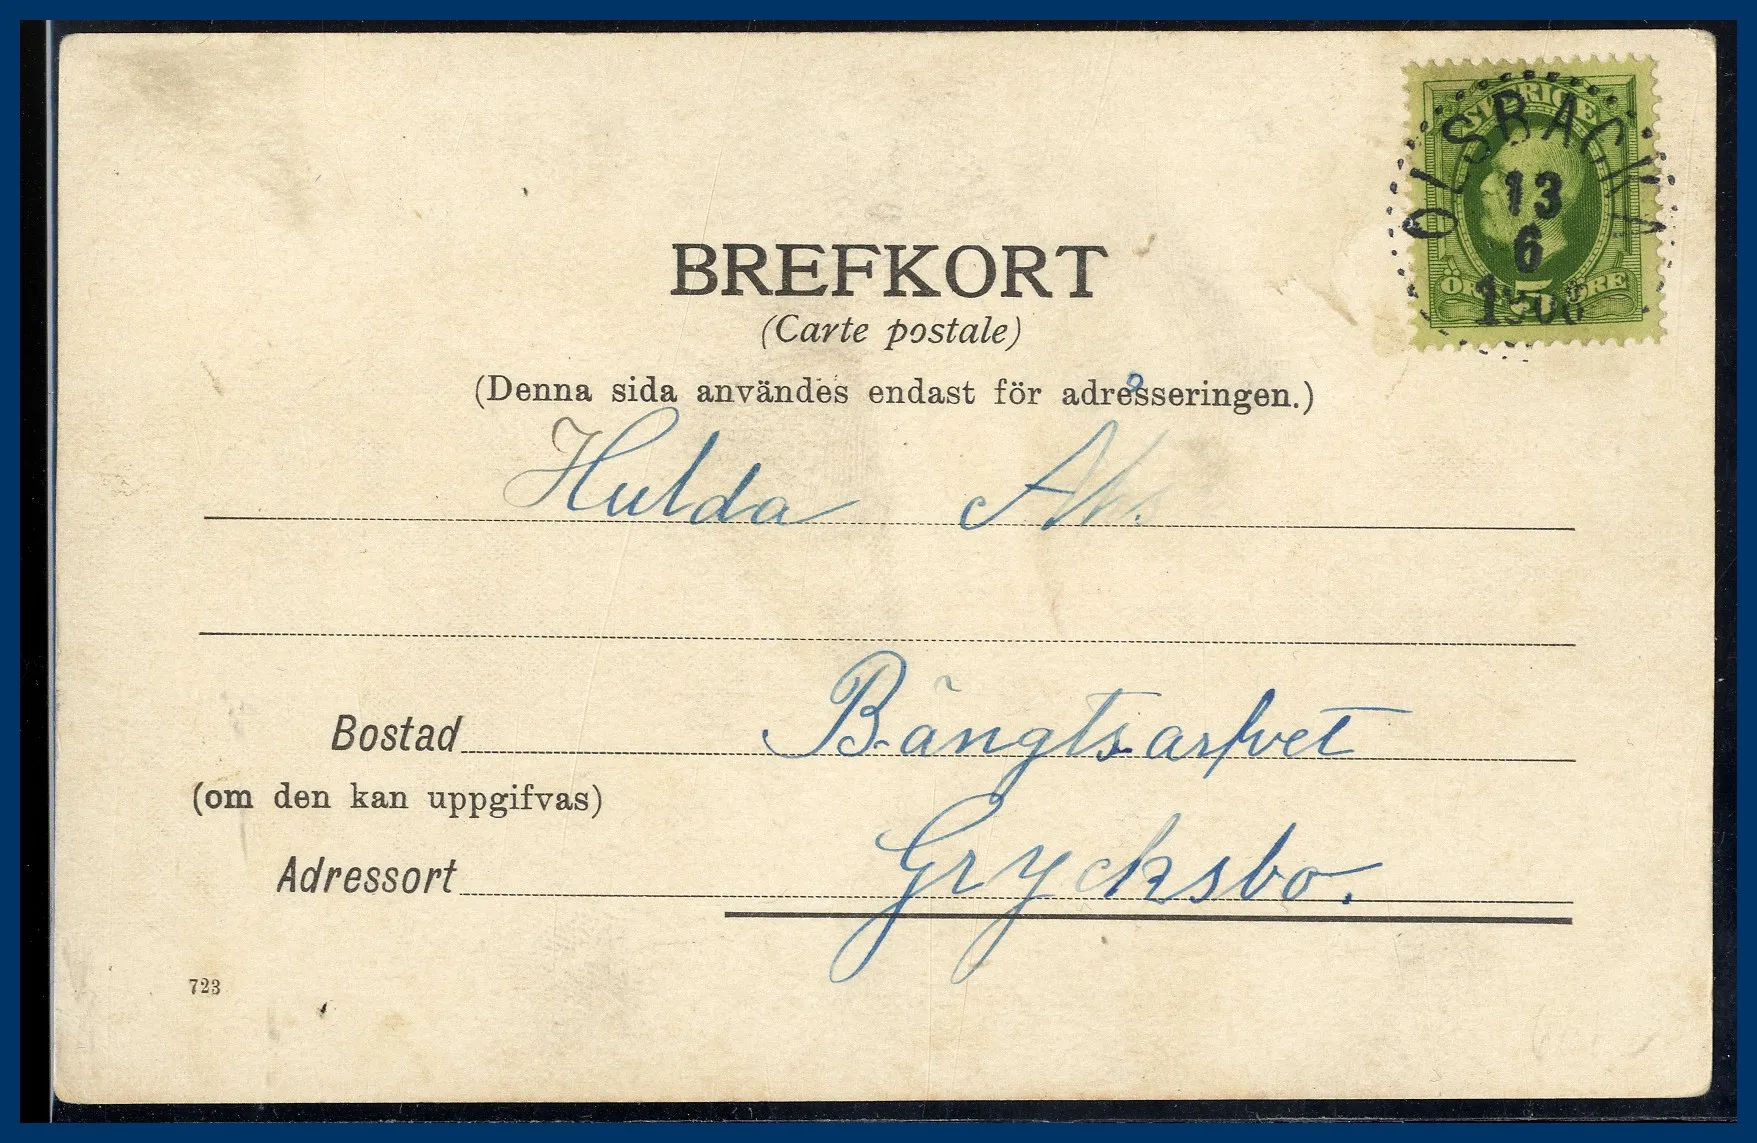 SVERIGE
ÖRE 5 ÖRE
OLSBACKA
13
6
1906
BREFKORT
(Carte postale)
(Denna sida användes endast för adresseringen.)
Hulda
Bostad Bängtsarfvet
(om den kan uppgifvas)
Adressort Grycksbo.
723